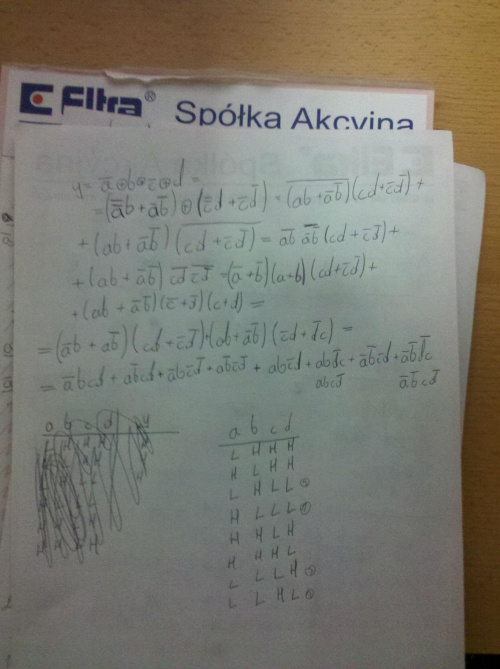 Eltra® Spółka Akcyjna
y = a̅ ⊕ b ⊕ c̅ ⊕ d =
= (a̿b + a̅b̅) ⊕ (c̅d + c̅d̅) = \overline{(ab + a̅b̅)} (cd + c̅d̅) +
+ (ab + a̅b̅) \overline{(cd + c̅d̅)} = \overline{ab} \overline{a̅b̅} (cd + c̅d̅) +
+ (ab + a̅b̅) \overline{cd} \overline{c̅d̅} = (a̅ + b̅)(a + b)(cd + c̅d̅) +
+ (ab + a̅b̅)(c̅ + d̅)(c + d) =
= (a̅b + ab̅)(cd + c̅d̅) + (ab + a̅b̅)(c̅d + d̅c) =
= a̅bcd + ab̅cd + a̅bc̅d̅ + ab̅c̅d̅ + abc̅d + abd̅c + a̅b̅c̅d + a̅b̅d̅c
abcd̅ a̅b̅cd̅
a b c d y
a b c d
L H H H
H L H H
L H L L
H L L L
H H L H
H H H L
L L L H
L L H L